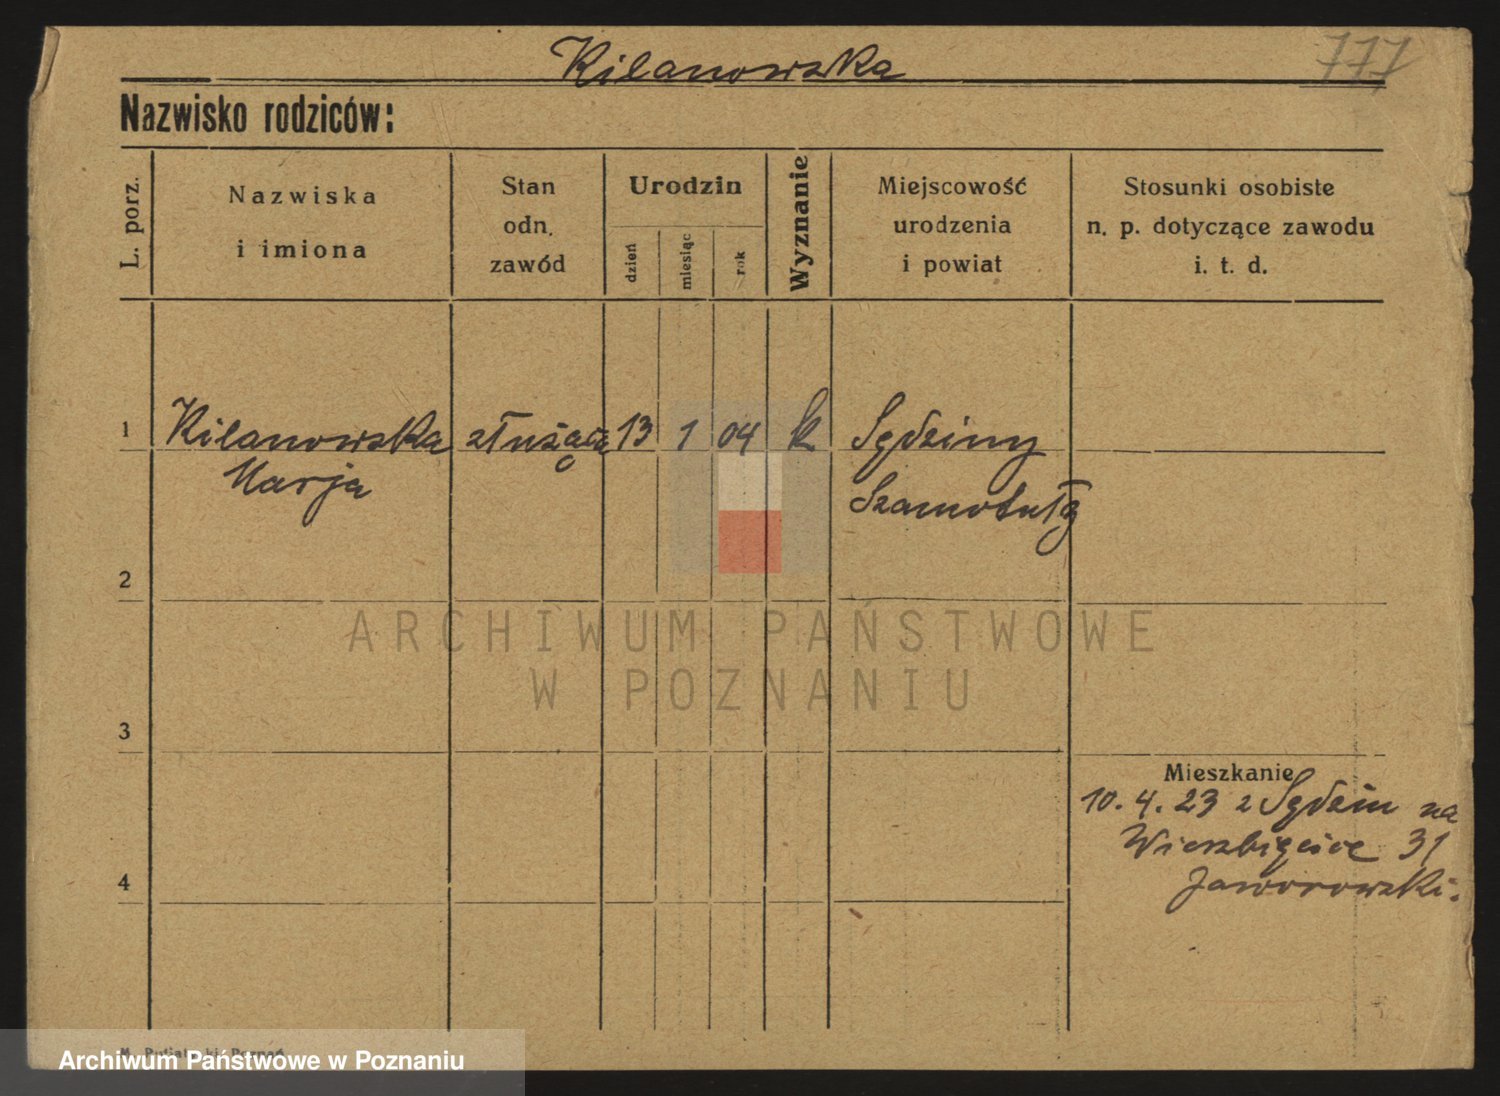 Kilanowska
777
Nazwisko rodziców:
L. porz.
Nazwiska
i imiona
Stan
odn.
zawód
Urodzin
dzień
miesiąc
rok
Wyznanie
Miejscowość
urodzenia
i powiat
Stosunki osobiste
n. p. dotyczące zawodu
i. t. d.
1 Kilanowska służąca 13 1 04 k Sędziny
Marja Szamotuły
2
ARCHIWUM PAŃSTWOWE
W POZNANIU
3
Mieszkanie
10. 4. 23 z Sędzin na
Wierzbięcice 31
Jaworowski.
4
Archiwum Państwowe w Poznaniu